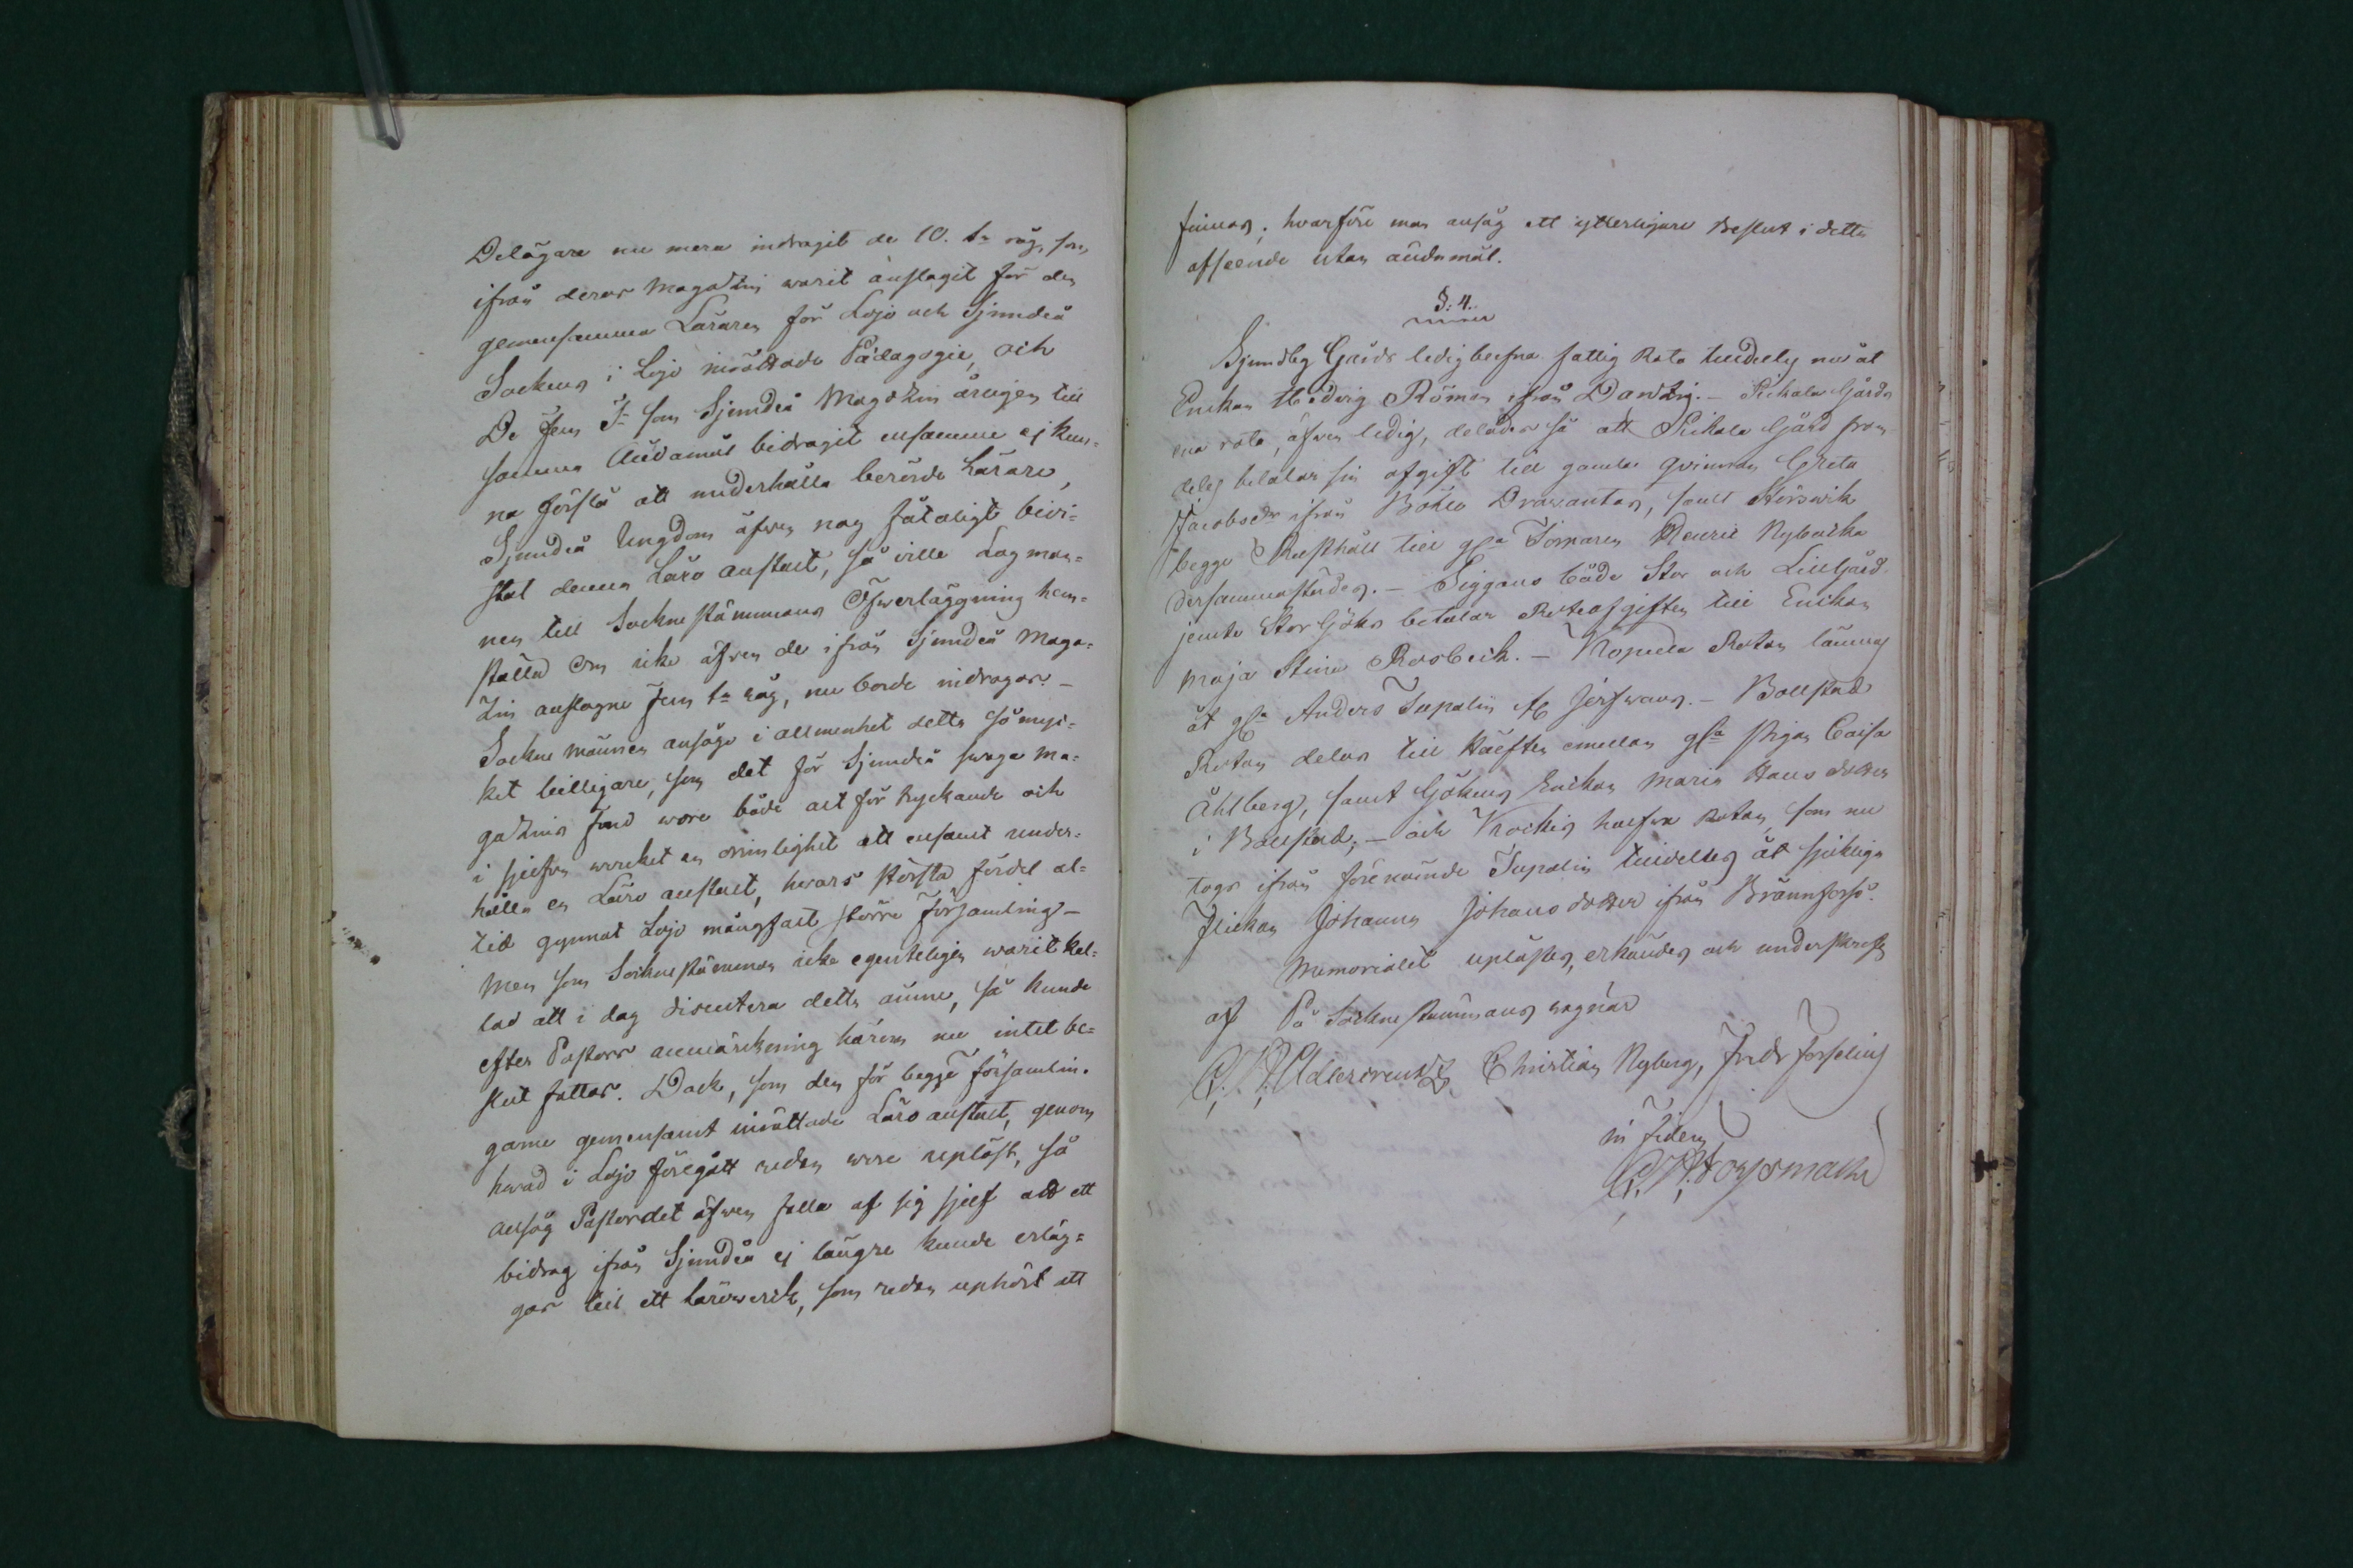 Delägare nu mera indragit de 10. t:r råg, som
ifrån deras Magazin warit anslagit för den
gemensamma Läraren för Lojo och Sjundeå
Socknar i Lojo inrättade Pädagogie, och
De Fem T:r som Sjundeå Magazin årligen till
samma Ändamål bidragit ensamme ej kun-
na förslå att underhålla berörde Lärare,
Sjundeå Ungdom äfwen nog fåtaligt bevi-
stat denna Läro anstalt, så ville Lag man-
nen till Sockne stämmans Öfwerläggning hem-
ställa Om icke äfwen de ifrån Sjundeå Maga-
zin anslagne Fem t:r råg, nu borde indragas. —
Sockne männen ansågo i allmenhet detta så myc-
ket billigare, som det för Sjundeå swaga Ma-
gazins fond wore både alt för tryckande och
i sjelfwa werket en orimlighet att ensamt under-
hålla en Läro anstalt, hwars största fördel al-
tid gynnat Lojo mångfalt större Församling —
Men som Sockne stämman icke egenteligen warit kal-
lad att i dag discutera detta ämne, så kunde
efter Pastors anmärckning härom nu intet be-
slut fattas. Dock, som den för begge försam̄lin-
garne gemensamt inrättade Läro anstalt, genom
hwad i Lojo föregått redan wore uplöst, så
ansåg Pastor det äfwen falla af sig sjelf att ett
bidrag ifrån Sjundeå ej längre kunde erläg-
gas till ett lärowerck, som redan uphört att
finnas; hvarföre man ansåg ett ytterligare Beslut i detta
afseende utan ändamål.
§: 4.
Sjundby Gårds ledig blefna fattig Rota tilldeltes nu åt
Enkan Hedvig Röman ifrån Dantzig. — Pickala Gårds
ena rota, äfwen ledig, delades så att Pickala Gård from-
deles betalar sin afgift till gamla Qvinnan Greta
Jacobsdr ifrån Böhle Drawantas, samt Störswik
begge Rusthåll till gla Tornaren Henric Nybacka
dersammastädes. — Siggans både Stor och Lill Gård
jemte Stor Göks betalar Roteafgiften till Enkan
Maja Stina Rosbeck. — Kopula Rotan lämnas
åt gla Anders Tupalin af Jerfwans. — Bollstads
Rotan delas till Hälften emellan gla Pigan Caisa
Åhlberg, samt Gökens Enckan Maria Hans dotter
i Bollstad; — och Krockis halfva Rotan, som nu
togs ifrån förenämde Tupalin tilldeltes åt sjukliga
Flickan Johanna Johans dotter ifrån Brännforss.
Memorialet uplästes, erkändes och underskrefs
af På Sockne stämmans wagnar
C. H. Adlercreutz, Christian Nyberg, Fredr Forselius
in fidem